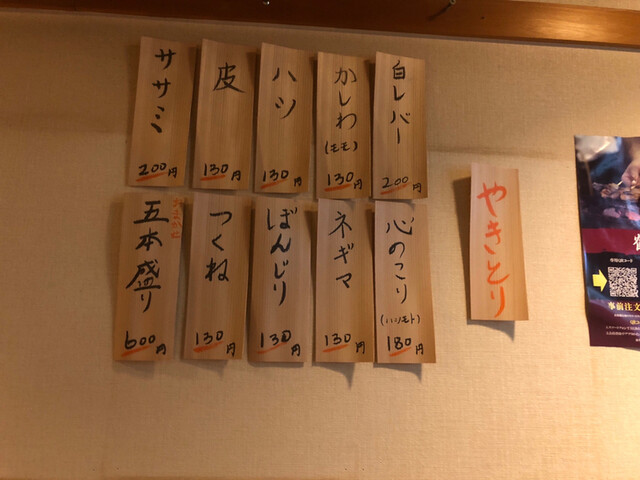 やきとり
白レバー
200円
かしわ
(モモ)
130円
ハツ
130円
皮
130円
ササミ
200円
心のこり
(ハツモト)
180円
ネギマ
130円
ぼんじり
130円
つくね
130円
おまかせ
五本盛り
600円
事前注文